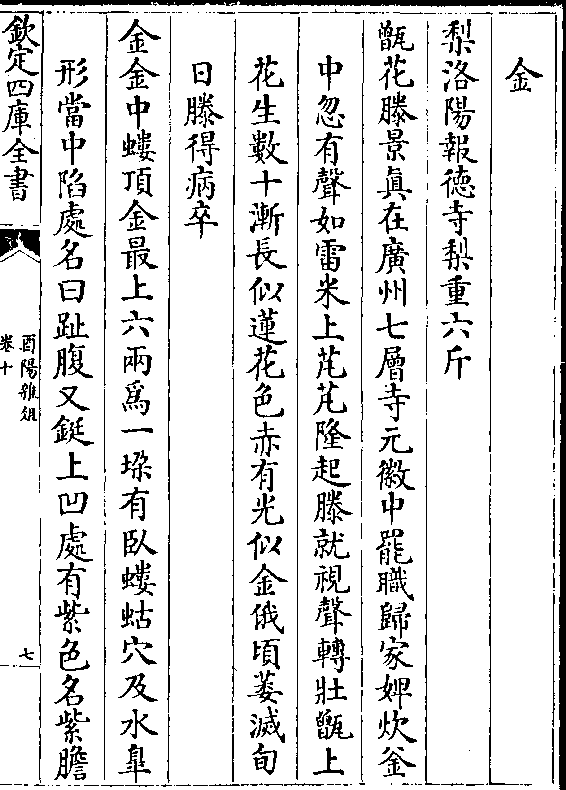 金
梨洛陽報德寺梨重六斤
甑花滕景眞在廣州七層寺元徽中罷職歸家婢炊釜
中忽有聲如雷米上芃芃隆起滕就視聲轉壯甑上
花生數十漸長似蓮花色赤有光似金俄頃萎滅旬
日滕得病卒
金金中螻頂金最上六兩爲一垜有臥螻蛄穴及水臯
形當中陷處名曰趾腹又鋌上凹處有紫色名紫膽
欽定四庫全書
酉陽雜俎
卷十
七